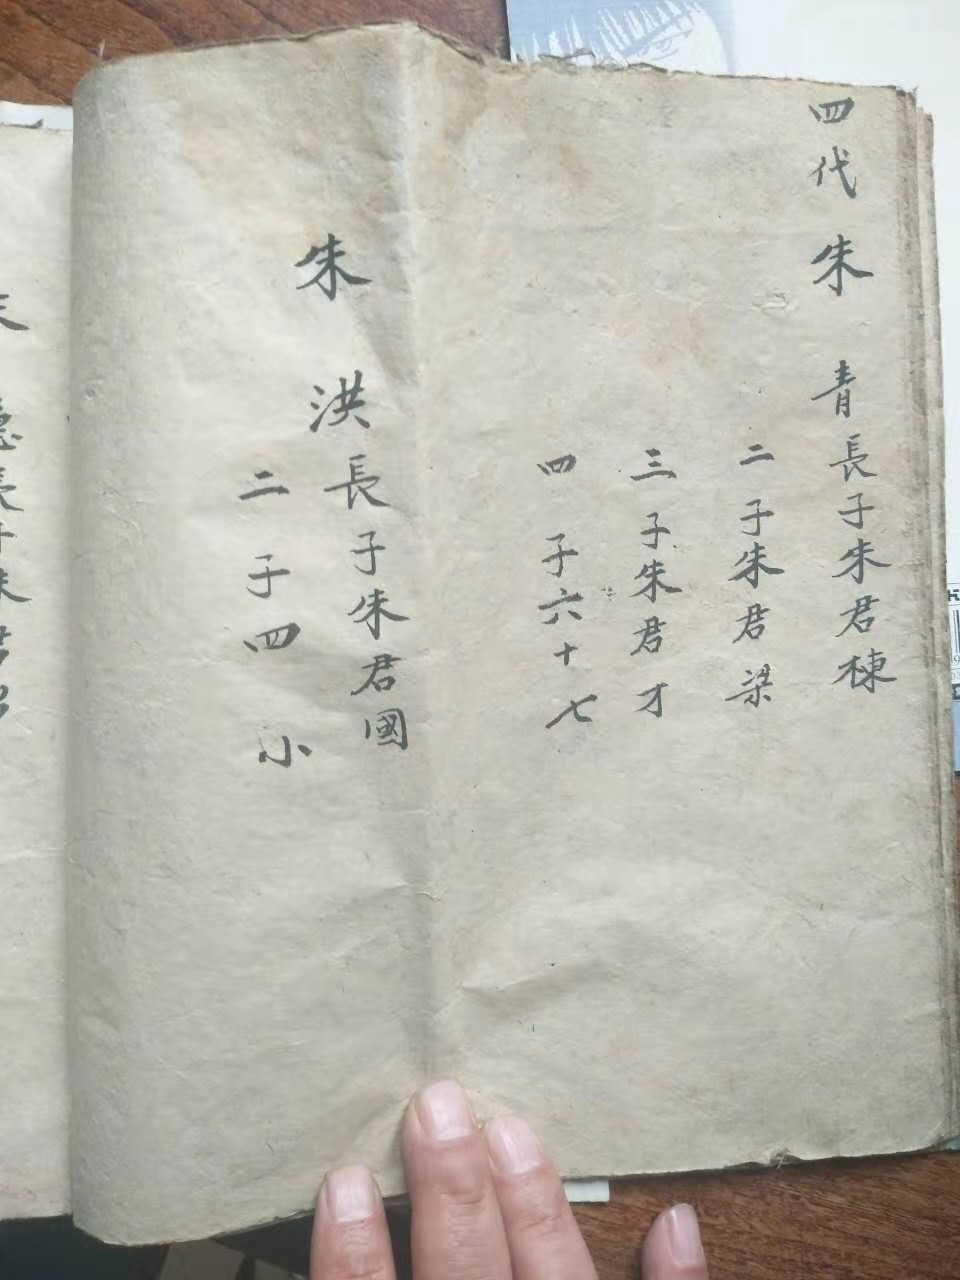 四代朱青長子朱君棟
二子朱君梁
三子朱君才
四子六十七
朱洪長子朱君國
二子四小